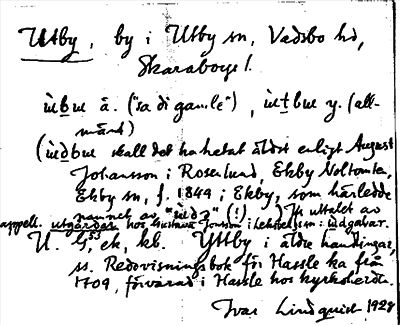 Utby, by i Utby sn, Vadsbo hd,
Skaraborgs l.
ùtbɯ ä. ("sa di gamle"), ùtbɯ y. (all-
mänt)
(ùdbɯ skall det ha hetat äldst enligt August
Johansson i Roselund, Ekby Noltomten,
Ekby sn, f. 1849 i Ekby, som härledde
namnet av "ùd" (!). Jfr uttalet av
appell. utgårdar hos Gustava Jonsson i
U. G:s ek, kb. Ytby i äldre handlingar,
ss. Redovisningsbok för Hassle ka från
1709, förvarad i Hassle hos kyrkoherde.
Ivar Lindquist 1928